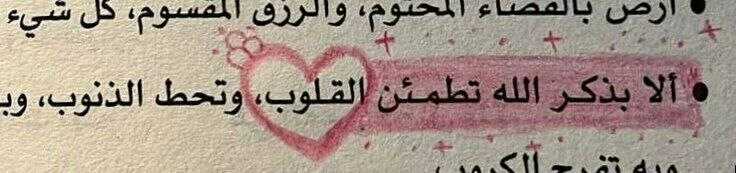 • ارض بالقضاء المحتوم، والرزق المقسوم، كل شيء
• ألا بذكر الله تطمئن القلوب، وتحط الذنوب، وب
وبه تفرج الكروب